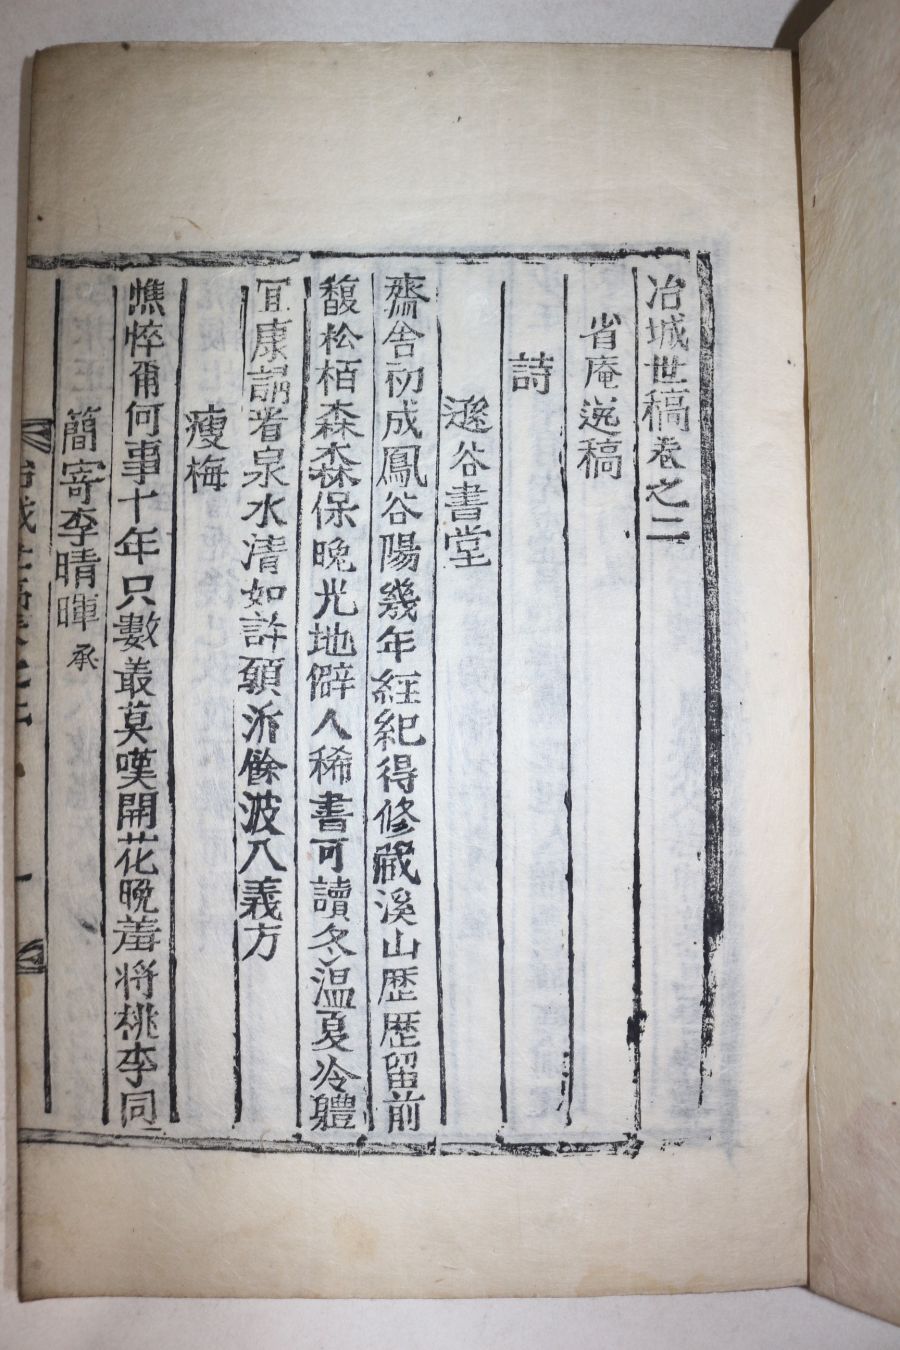 冶城世稿卷之二
省庵逸稿
詩
遯谷書堂
齋舍初成鳳谷陽幾年経紀得修藏溪山歷歷留前
馥松栢森森保晩光地僻人稀書可讀冬温夏冷軆
冝康諦看泉水清如許願沂餘波入義方
瘦梅
憔悴甭何事十年只數叢莫嘆開花晩羞将桃李同
簡寄李晴暉 承
冶城世稿卷之二 一